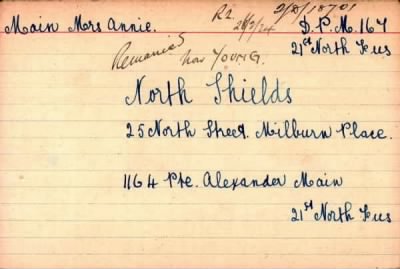 Main Mrs Annie.
R2. 26/9/24
2/8/18701
D.P.M. 167
21st North Fus
Remarried
now YOUNG.
North Shields
25 North Street. Milburn Place.
1164 Pte. Alexander Main
21st North Fus